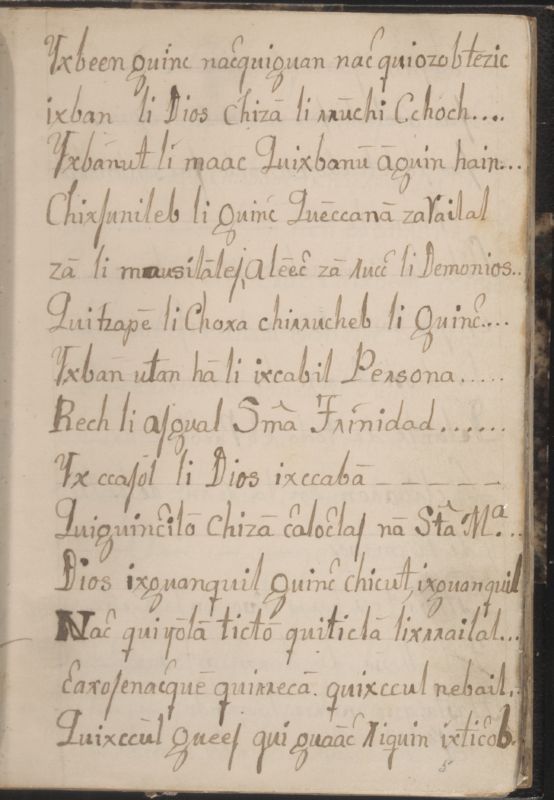 Yxbeen quinc nac̃quiguan nac̃ quiozobtezic
ixban li Dios Chizā li ɴuchi Cchoch....
Yxbanut li maac Quixbanū āguin hain...
Chixſunileb li guinc̃ Quēccanā zaYailal
zā li mausilāleſ, alēēc̃ zā ɴucc̃ li Demonios..
Quitzapē li Choxa chiɴucheb li guinc̃....
Yxban utan hā li ixcabil Persona.....
Rech li aſgual Sm̃a Trinidad......
Yx ccaſōl li Dios ixccabā _ _ _ _ _
Quiguinc̃ilō Chizā c̃aloc̃laſ nā St̃a Mª...
Dios ixguanquil guinc̃ chicut, ixguanquil
Nac̃ qui yōlā tictō quiticlā lixɴailal...
c̃axoſenac̃quē quiɴecā. quixccul nebail..
Quixccūl gueeſ qui guaāc̃ ɴiquin ixtic̃ob.